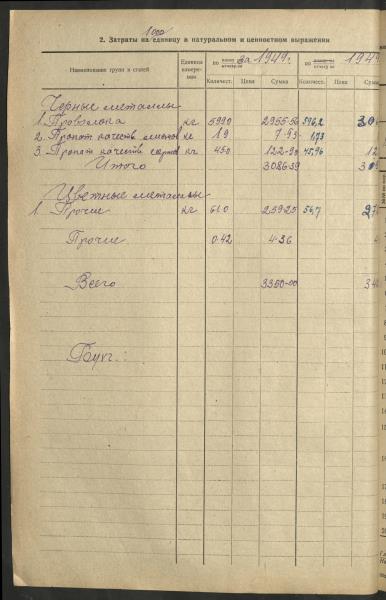 1000
2. Затраты на единицу в натуральном и ценностном выражении
Наименование групп и статей Единица измерения по плану отчету за 1949г. по плану отчету за 1949
Количест. Цена Сумма Количест. Цена Сумма
Черные металлы
1. Проволока кг 5990 2955-56 596,2
2. Прокат качеств листов кг 1.9 7-93 1,73
3. Прокат качеств кг 450 122-90 45,96 12
Итого 3086-39
Цветные металлы
1 Прочие кг 61.0 259-25 56,7
Прочие 0.42 4-36
Всего 3350-00
Бухг.: